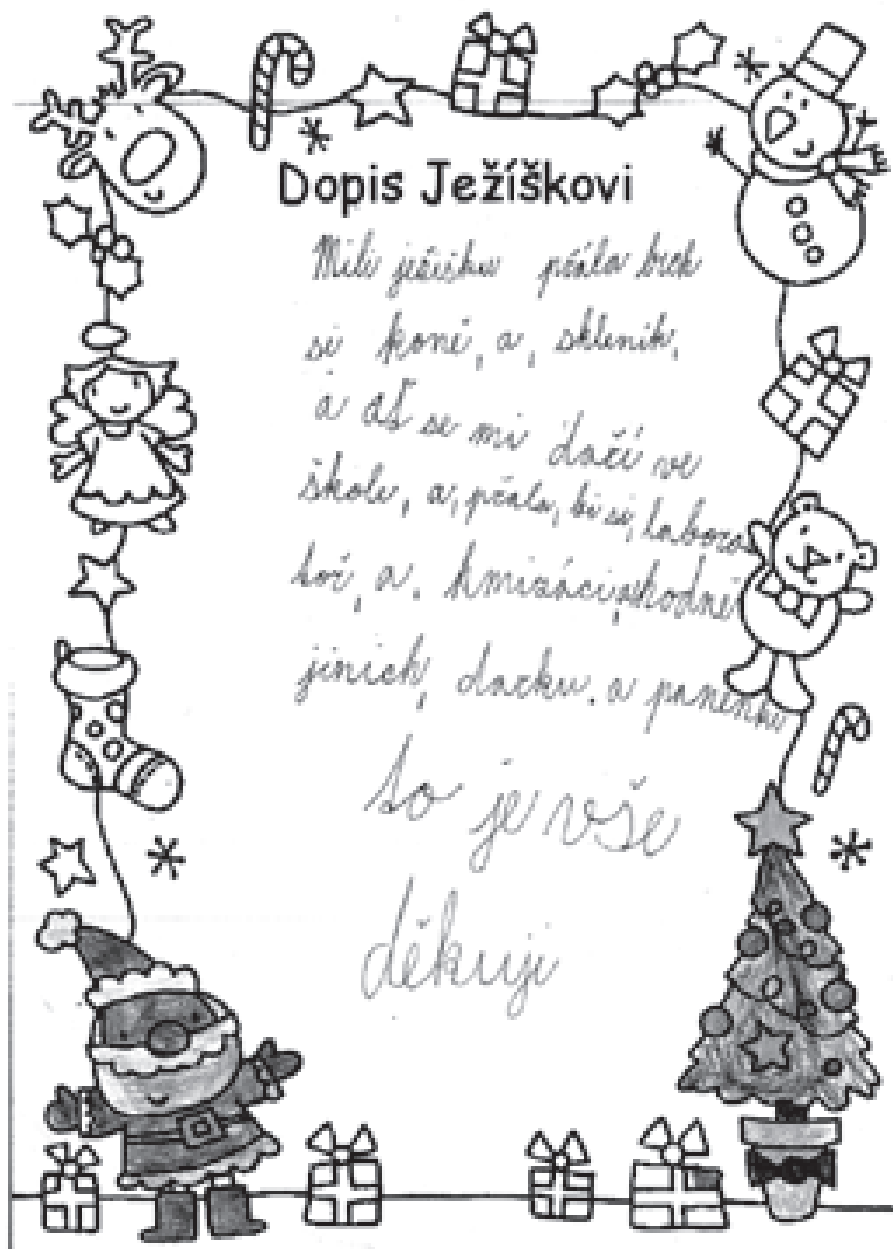 Dopis Ježíškovi
Mili ježišku přála bich
si koně, a, skleník,
a ať se mi dačí ve
škole, a, přála, bi si, labora
toř, a, hmizáci, a hodně
jinich, dárku. a panenku
to je vše
děkuji